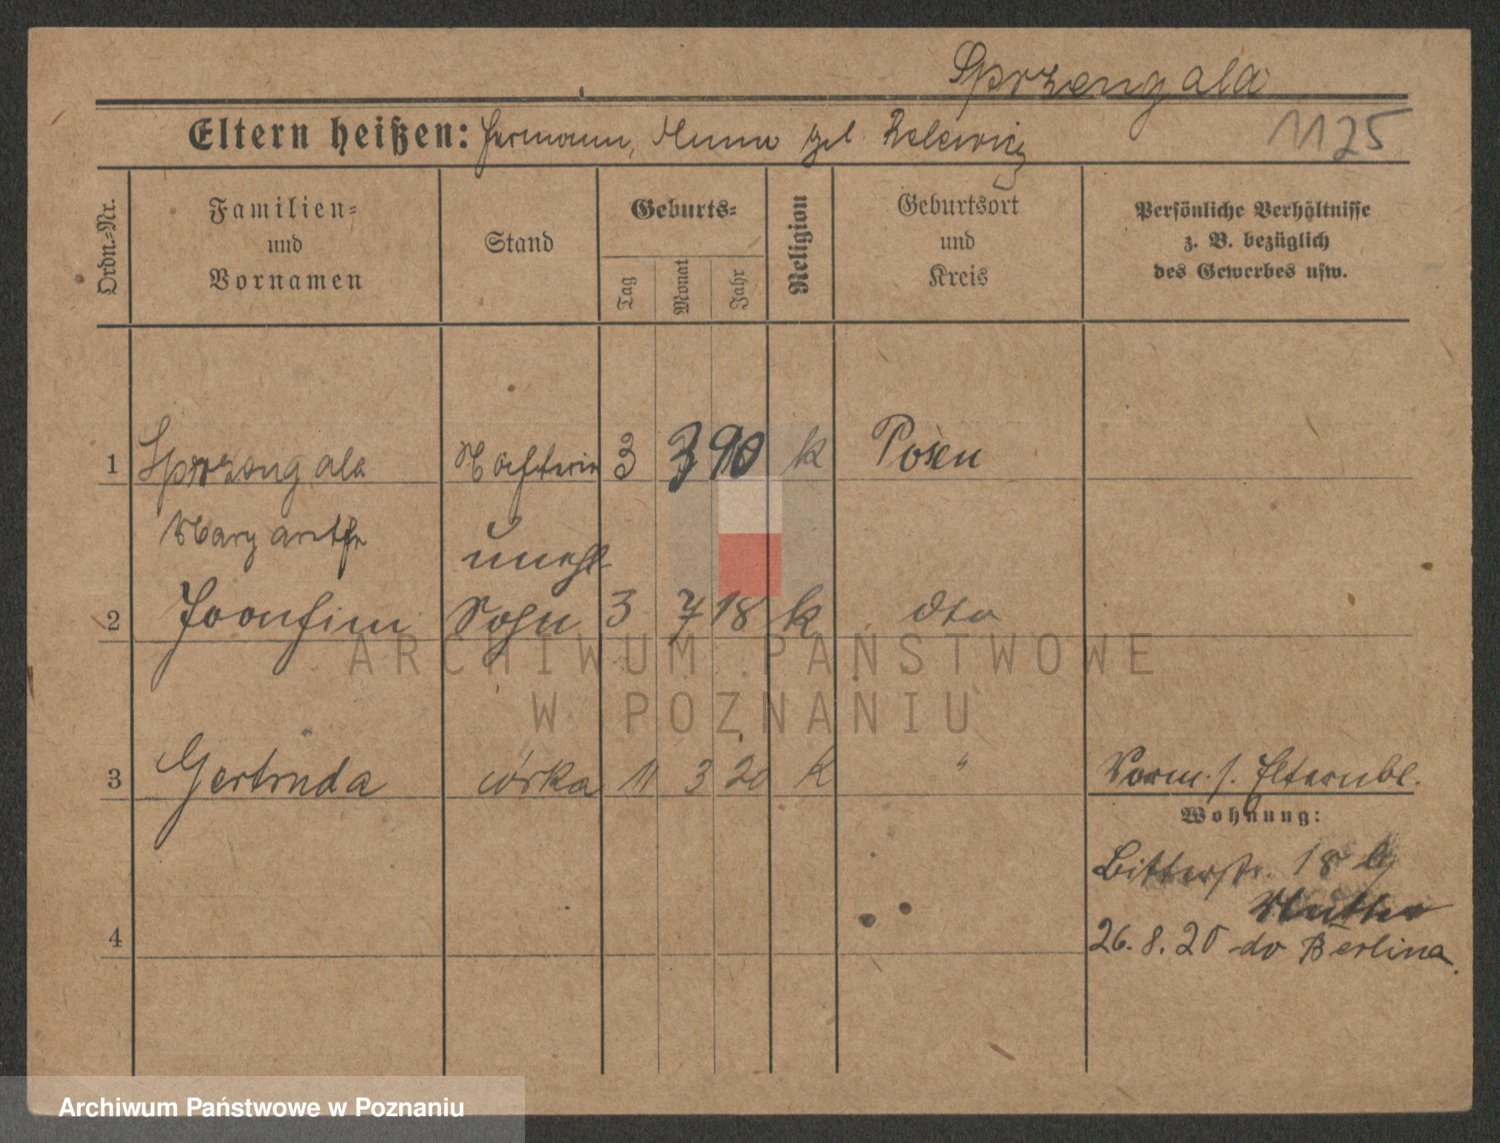 Sprzengala
Eltern heißen: Hermann, Anna geb. Zelewicz
1125
Ordn.-Nr.
Familien-
und
Vornamen
Stand
Geburts-
Tag
Monat
Jahr
Religion
Geburtsort
und
Kreis
Persönliche Verhältnisse
z. B. bezüglich
des Gewerbes usw.
1 Sprzengala 3 3 90 k Posen
Margarethe
unehl
2 Joachim Sohn 3 7 18 k dto
ARCHIWUM PAŃSTWOWE
W POZNANIU
3 Gertruda córka 11 3 20 k " Vorm. s. Elternbl.
Wohnung:
Bitterstr. 18 b/
Mutter
4 26.8.20 do Berlina.
Archiwum Państwowe w Poznaniu